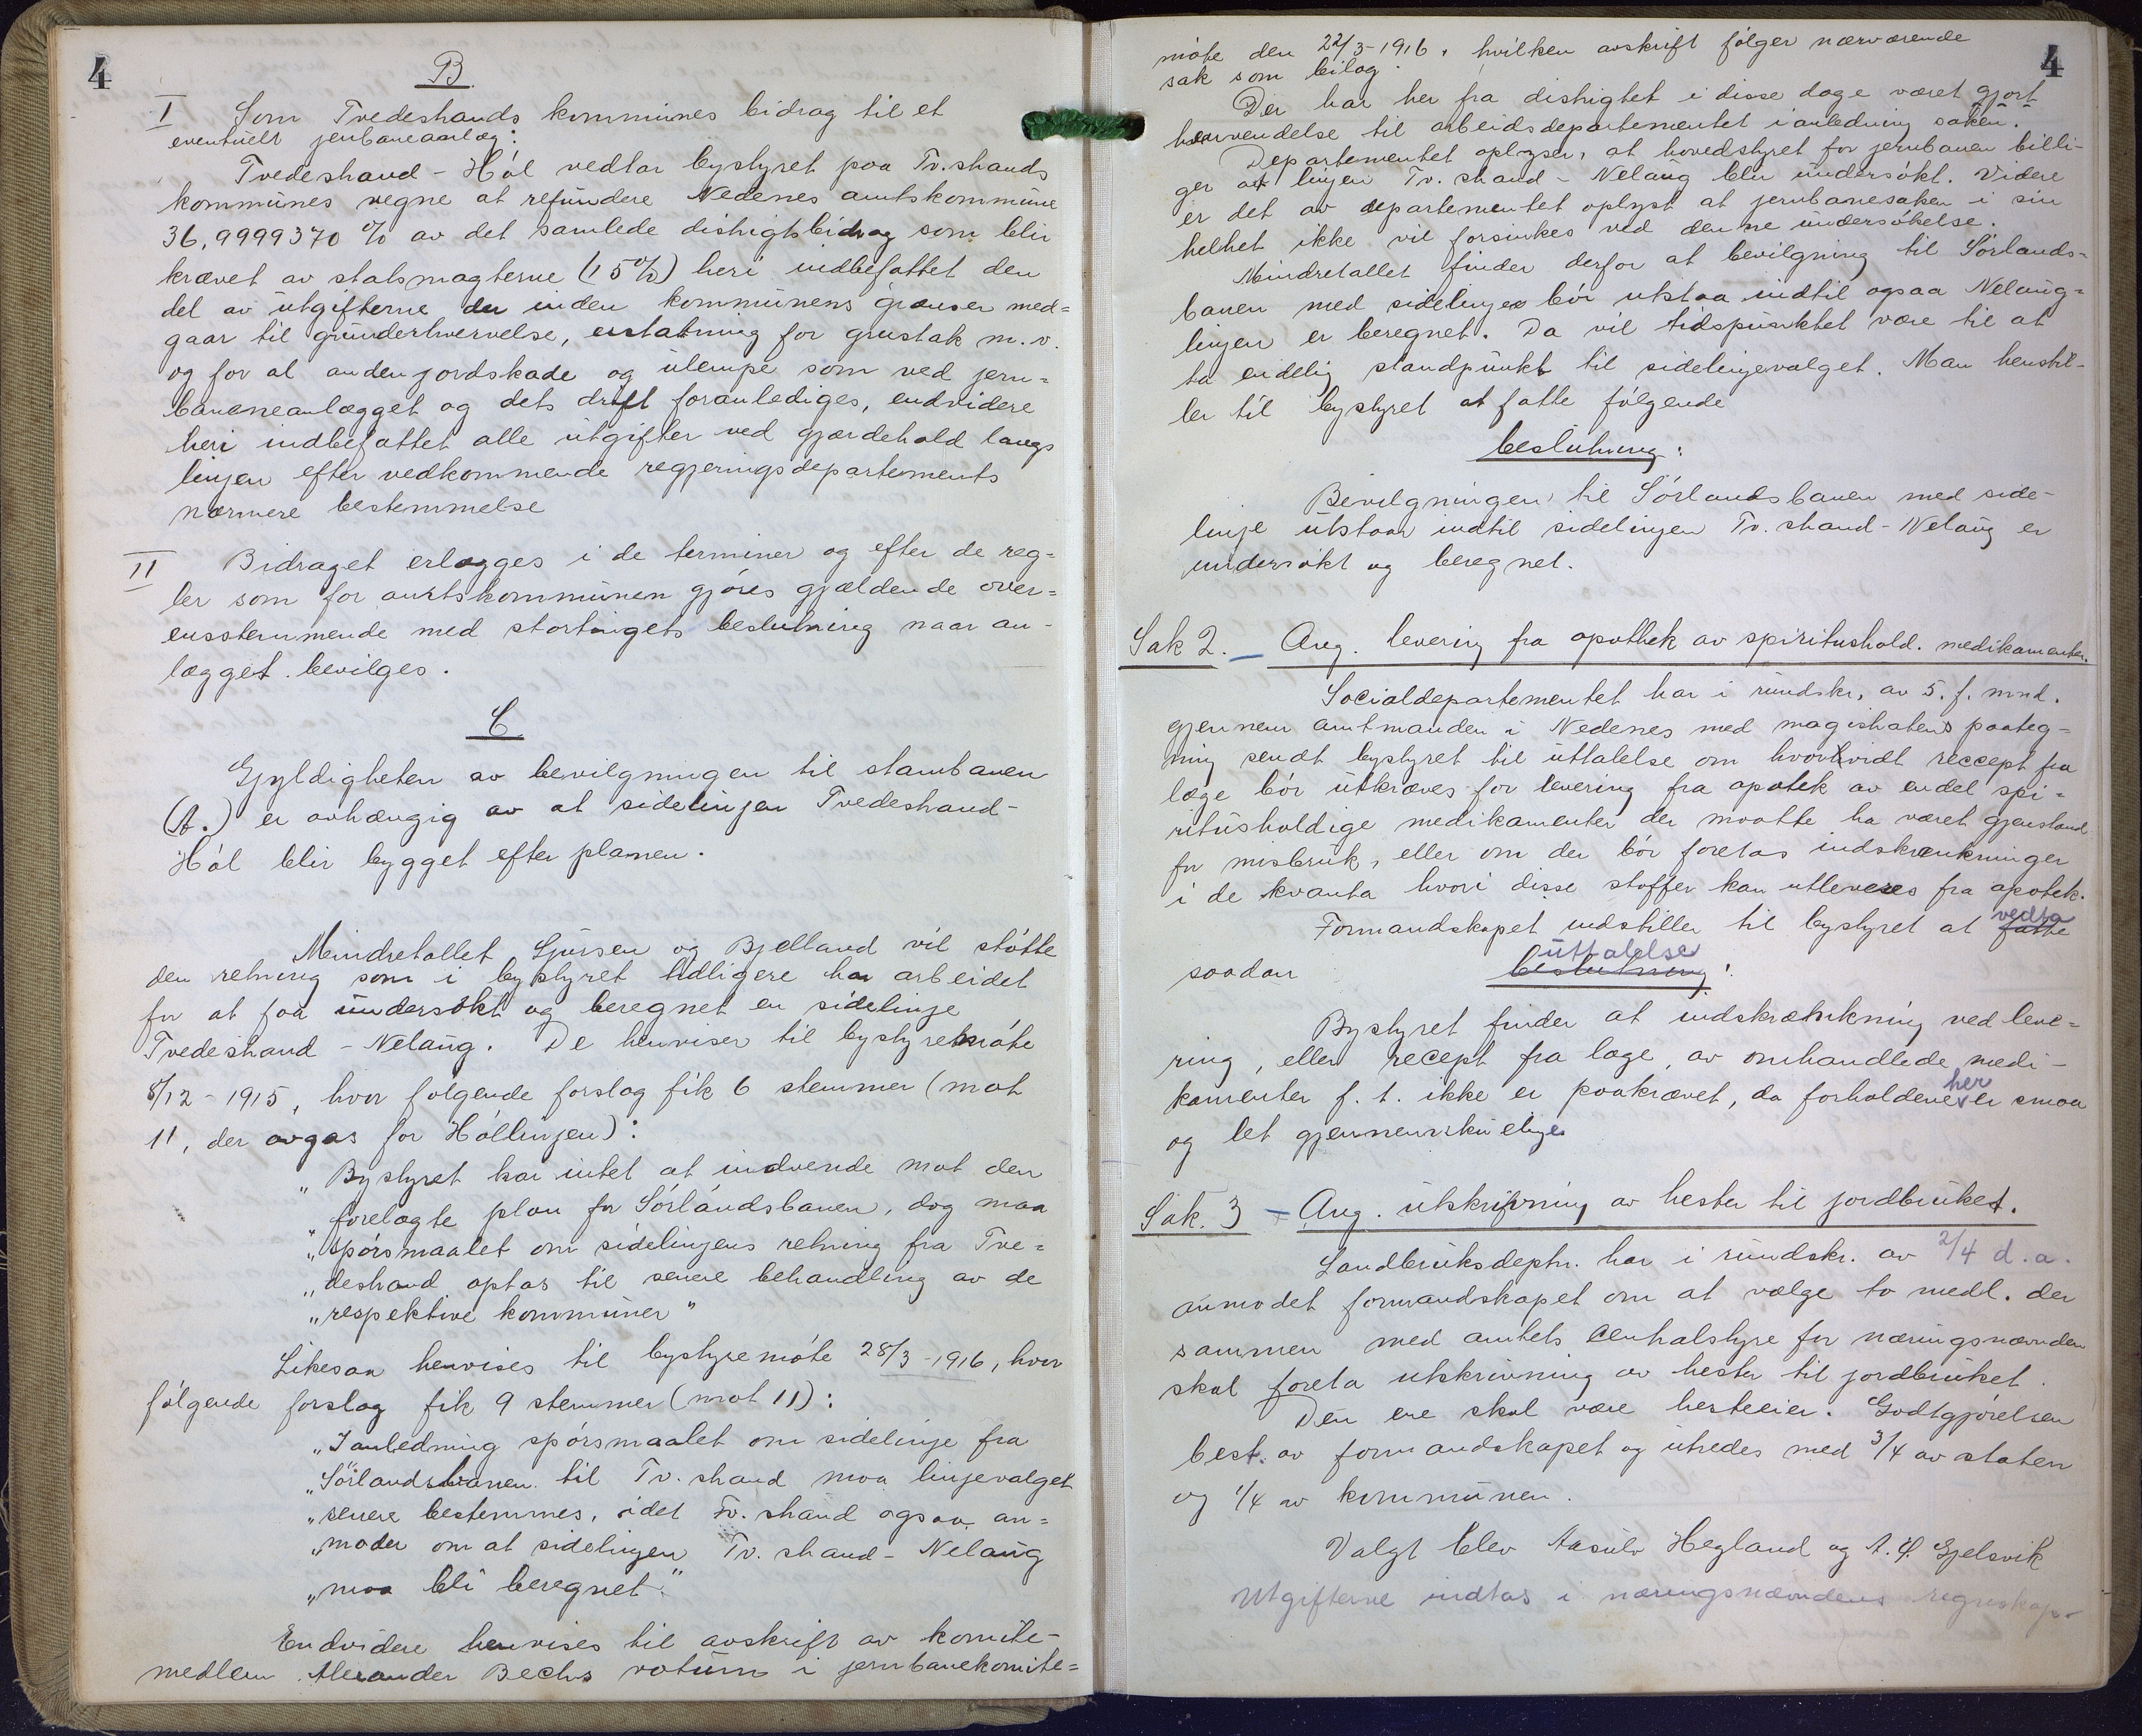 4
B
I Som Tvedestrands kommunes bidrag til et
eventuelt jernbaneanlæg:
Tvedestrand - Hól vedtar bystyret paa Tv.strands
kommunes vegne at refundere Nedenes amtskommune
36,9999370 % av det samlede distrigtsbidrag som blir
krævet av statsmagterne (15%) heri indbefattet den
del av utgifterne der inden kommunens grænser med=
gaar til grunderhvervelse, erstatning for grustak m.v.
og for al anden jordskade og ulempe som ved jern=
baneneanlægget og dets drift foranlediges, endvidere
heri indbefattet alle utgifter ved gjærdehold langs
linjen efter vedkommende regjeringsdepartements
nærmere bestemmelse
II Bidraget erlægges i de terminer og efter de reg=
ler som for amtskommunen gjóres gjældende over=
ensstemmende med stortingets beslutning naar an-
lægget bevilges.
C
Gyldigheten av bevilgningen til stambanen
(A.) er avhængig av at sidelinjen Tvedestrand-
Hól blir bygget efter planen.
Mindretallet Sjursen og Bjelland vil stótte
den retning som i bystyret tidligere har arbeidet
for at faa undersökt og beregnet en sidelinje
Tvedestrand - Nelaug. De henviser til bystyremóte
8/12 - 1915, hvor fólgende forslag fik 6 stemmer (mot
11, der avgas for Hóllinjen):
"Bystyret har intet at indvende mot den
"forelagte plan for Sórlandsbanen, dog maa
"spórsmaalet om sidelinjens retning fra Tve=
"destrand optas til senere behandling av de
"respektive kommuner"
Likesaa henvises til bystyremóte 28/3 - 1916, hvor
fólgende forslag fik 9 stemmer (mot 11):
"I anledning spórsmaalet om sidelinje fra
"Sörlandsbanen til Tv.strand maa linjevalget
"senere bestemmes, idet Tv.strand ogsaa an=
"moder om at sidelinjen Tv.strand - Nelaug
"maa bli beregnet."
Endvidere henvises til avskrift av komite-
medlem Alexander Bechs votum i jernbanekomite=
4
móte den 22/3-1916, hvilken avskrift fólger nærværende
sak som bilag.
Der har her fra distrigtet i disse dage været gjort
henvendelse til arbeidsdepartementet i anledning saken.
Departementet oplyser, at hovedstyret for jernbanen billi-
ger at linjen Tv.strand - Nelaug blir undersókt. Videre
er det av departementet oplyst at jernbanesaken i sin
helhet ikke vil forsinkes ved denne undersókelse.
Mindretallet finder derfor at bevilgning til Sórlands=
banen med sidelinjer bór utstaa indtil ogsaa Nelaug=
linjen er beregnet. Da vil tidspunktet være til at
ta endelig standpunkt til sidelinjevalget. Man henstil-
ler til bystyret at fatte fólgende
beslutning:
Bevilgningen til Sórlandsbanen med side-
linje utstaar indtil sidelinjen Tv.strand - Nelaug er
undersókt og beregnet.
Sak 2. – Ang. levering fra apothek av spiritushold. medikamenter.
Socialdepartementet har i rundskr. av 5. f. mnd.
gjennem amtmanden i Nedenes med magistratens paateg-
ning sendt bystyret til uttalelse om hvorvidt reccept fra
læge bór utkræves for levering fra apotek av endel spi=
ritusholdige medikamenter der maatte ha været gjenstand
for misbruk, eller om der bór foretas indskrænkninger
i de kvanta hvori disse stoffer kan utleveres fra apotek.
Formandskapet indstiller til bystyret at fatte vedta
saadan beslutning uttalelse:
Bystyret finder at indskrænkning ved leve=
ring, eller recept fra læge, av omhandlede medi-
kamenter f. t. ikke er paakrævet, da forholdene her er smaa
og let gjennemskuelige
Sak. 3 – Ang. utskrivning av hester til jordbruket.
Landbruksdeptr. har i rundskr. av 2/4 d.a.
anmodet formandskapet om at vælge to medl. der
sammen med amtets centralstyre for næringsnævnden
skal foreta utskrivning av hester til jordbruket.
Den ene skal være hesteeier. Godtgjórelsen
best. av formandskapet og utredes med 3/4 av staten
og 1/4 av kommunen.
Valgt blev Aasulv Hegland og Gjelsvik
Utgifterne indtas i næringsnævndens regnskap.